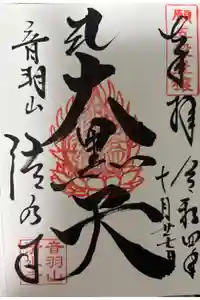 奉拝
令和四年
十月廿七日
大黒天
音羽山
清水寺
音羽山